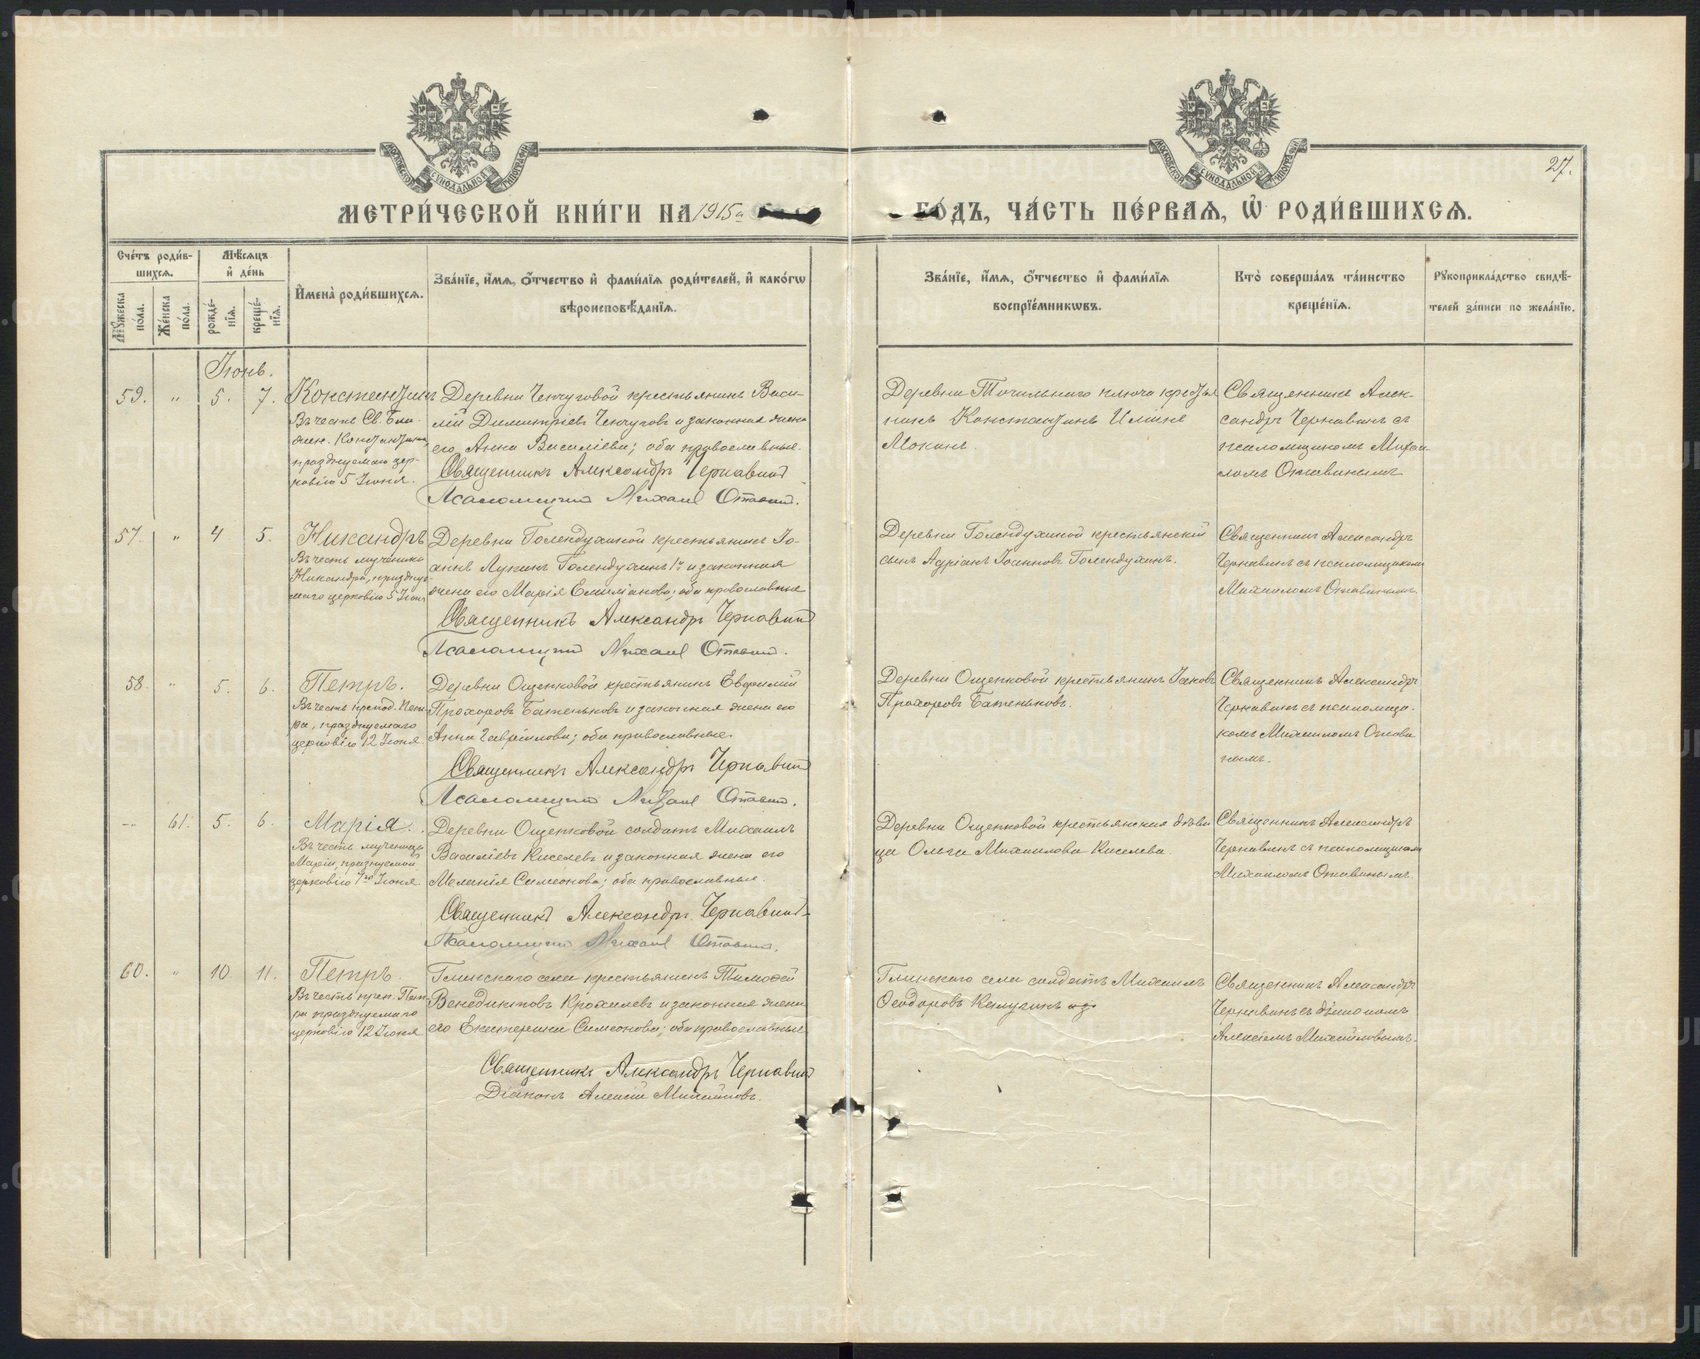 27.
МЕТРИ́ЧЕСКОЙ КНИ́ГИ НА 1915й
ГО́ДЪ, ЧА́СТЬ ПЕ́РВАѦ, Ѡ҆ РОДИ́ВШИХСѦ.
Сче́тъ роди́в-
шихсѧ.
Мѣ́сѧцъ
и҆ де́нь
Мꙋ́жеска по́ла.
Же́нска по́ла.
рожде́-
нїѧ.
креще́-
нїѧ.
И҆мена̀ роди́вшихсѧ.
Зва́нїе, и҆́мѧ, ѻ҆́тчество и҆ фами́лїѧ роди́телей, и҆ како́гѡ
вѣроисповѣ́данїѧ.
Зва́нїе, и҆́мѧ, ѻ҆́тчество и҆ фами́лїѧ
воспрїе́мникѡвъ.
Кто̀ соверша́лъ та́инство
креще́нїѧ.
Рꙋкоприкла́дство свидѣ́-
телей за́писи по жела́нїю.
Іюнь.
59. " 5. 7. Константинъ
Въ честь Св. Бла-
жен. Константина,
празднуемаго цер-
ковію 5 Іюня.
Деревни Ченчуговой крестьянинъ Васи-
лій Димитріевъ Ченчуговъ и законная жена
его Анна Василіева; оба православные.
Священникъ Александръ Чернавинъ
Псаломщикъ Михаил Отавин.
Деревни Точильнаго ключа крестья
нинъ Константинъ Ильинъ
Мокинъ.
Священникъ Алек-
сандръ Чернавинъ съ
псаломщикомъ Михаи
ломъ Отавинымъ
57. " 4 5. Никандръ
Въ честь мученика
Никандра, праздну-
емаго церковію 5 Іюня
Деревни Голендухиной крестьянинъ Іо-
аннъ Лукинъ Голендухинъ 1й и законная
жена его Марія Емиліанова; оба православные
Священникъ Александръ Чернавинъ
Псаломщикъ Михаил Отавин.
Деревни Голендухиной крестьянскій
сынъ Адріанъ Іоанновъ Голендухинъ.
Священникъ Александръ
Чернавинъ съ псаломщикомъ
Михаиломъ Отавинымъ
58. " 5. 6. Петръ.
Въ честь препод. Пет-
ра, празднуемаго
церковію 12 Іюня
Деревни Ощепковой крестьянинъ Евфимій
Прохоровъ Батеньковъ и законная жена его
Анна Гавріилова; оба православные.
Священникъ Александръ Чернавин
Псаломщикъ Михаил Отавин.
Деревни Ощепковой крестьянинъ Іаковъ
Прохоровъ Батеньковъ.
Священникъ Александръ
Чернавинъ съ псаломщи-
комъ Михаиломъ Отави
нымъ.
-- 61. 5. 6. Марія.
Въ честь мученицы
Маріи, празднуемой
церковію 7го Іюня
Деревни Ощепковой солдатъ Михаилъ
Василіевъ Киселевъ и законная жена его
Меланія Симеонова; оба православные.
Священникъ Александръ Чернавинъ
Псаломщикъ Михаил Отавин.
Деревни Ощепковой крестьянская дѣви
ца Ольга Михаилова Киселева.
Священникъ Александръ
Чернавинъ съ псаломщикомъ
Михаиломъ Отавинымъ.
60. " 10 11. Петръ.
Въ честь преп. Пет-
ра празднуемаго
церковію 12 Іюня
Глинскаго села крестьянинъ Тимоѳей
Венедиктовъ Крохалевъ и законная жена
его Екатерина Симеонова; оба православные
Священникъ Александръ Чернавин
Діаконъ Алексій
Глинскаго села солдатъ Михаилъ
Ѳеодоровъ Калугинъ
Священникъ Александръ
Чернавинъ съ діакономъ
Алексіемъ